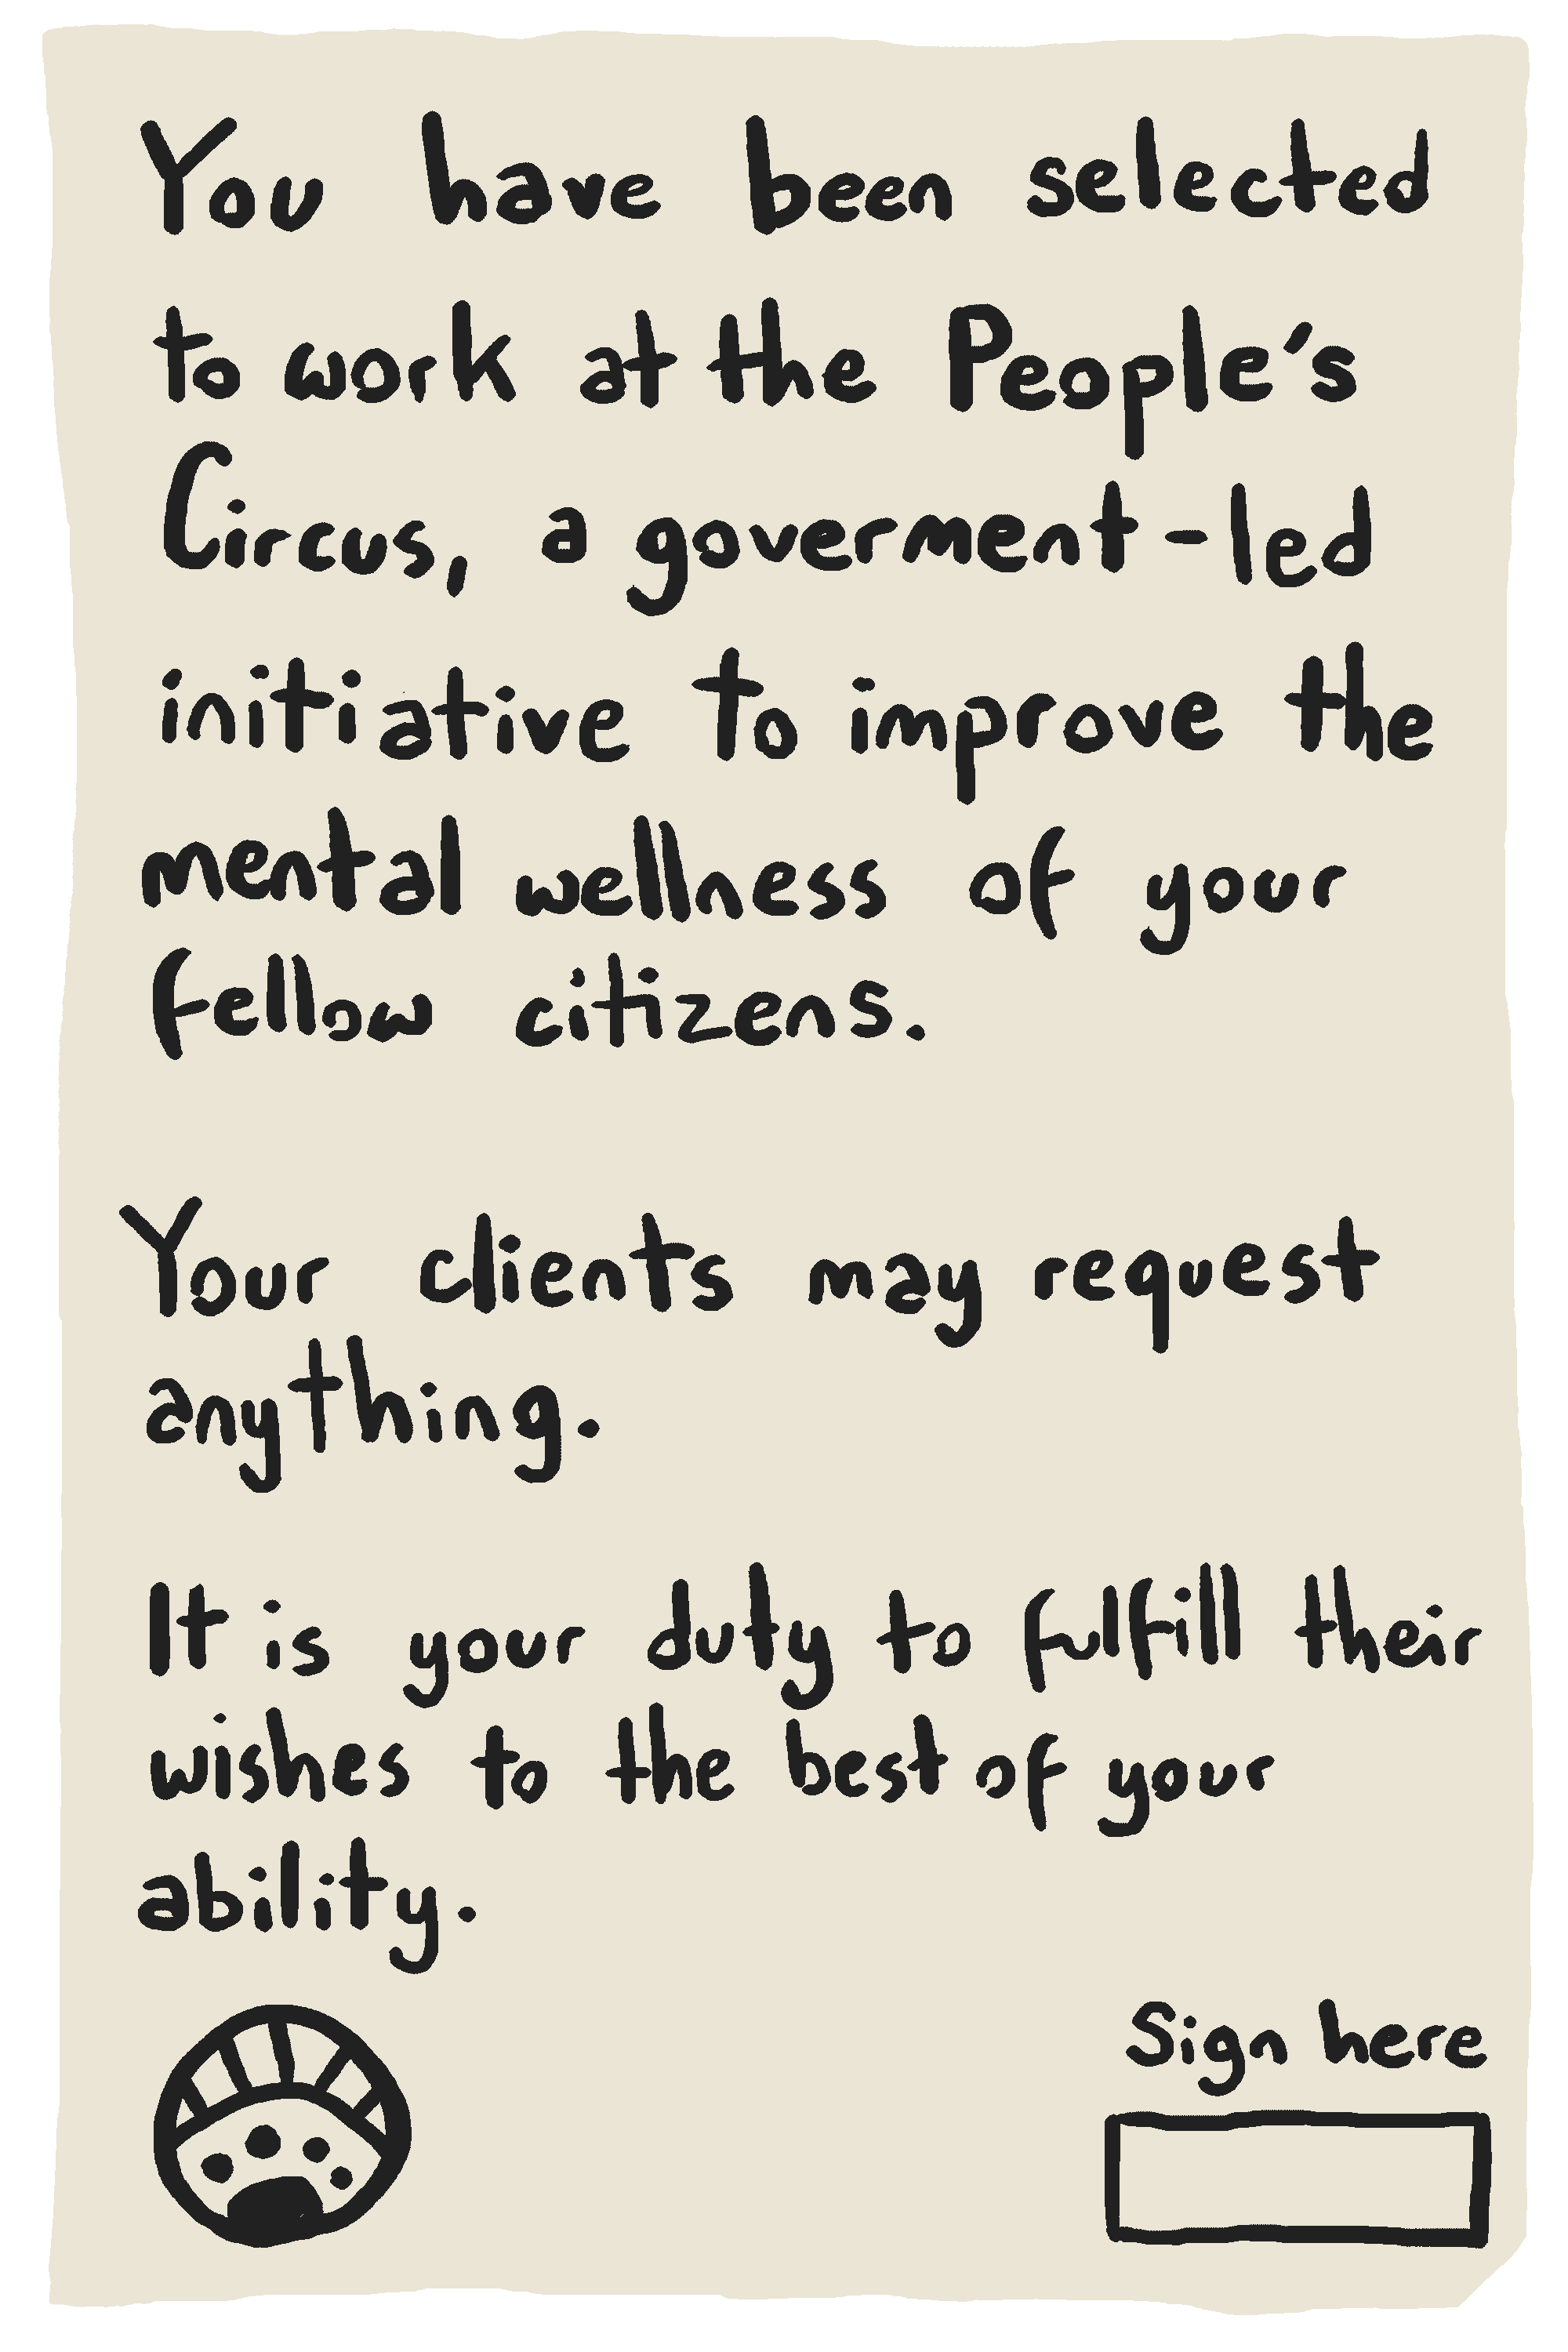 You have been selected
to work at the People's
Circus, a goverment-led
initiative to improve the
mental wellness of your
fellow citizens.
Your clients may request
anything.
It is your duty to fulfill their
wishes to the best of your
ability.
Sign here